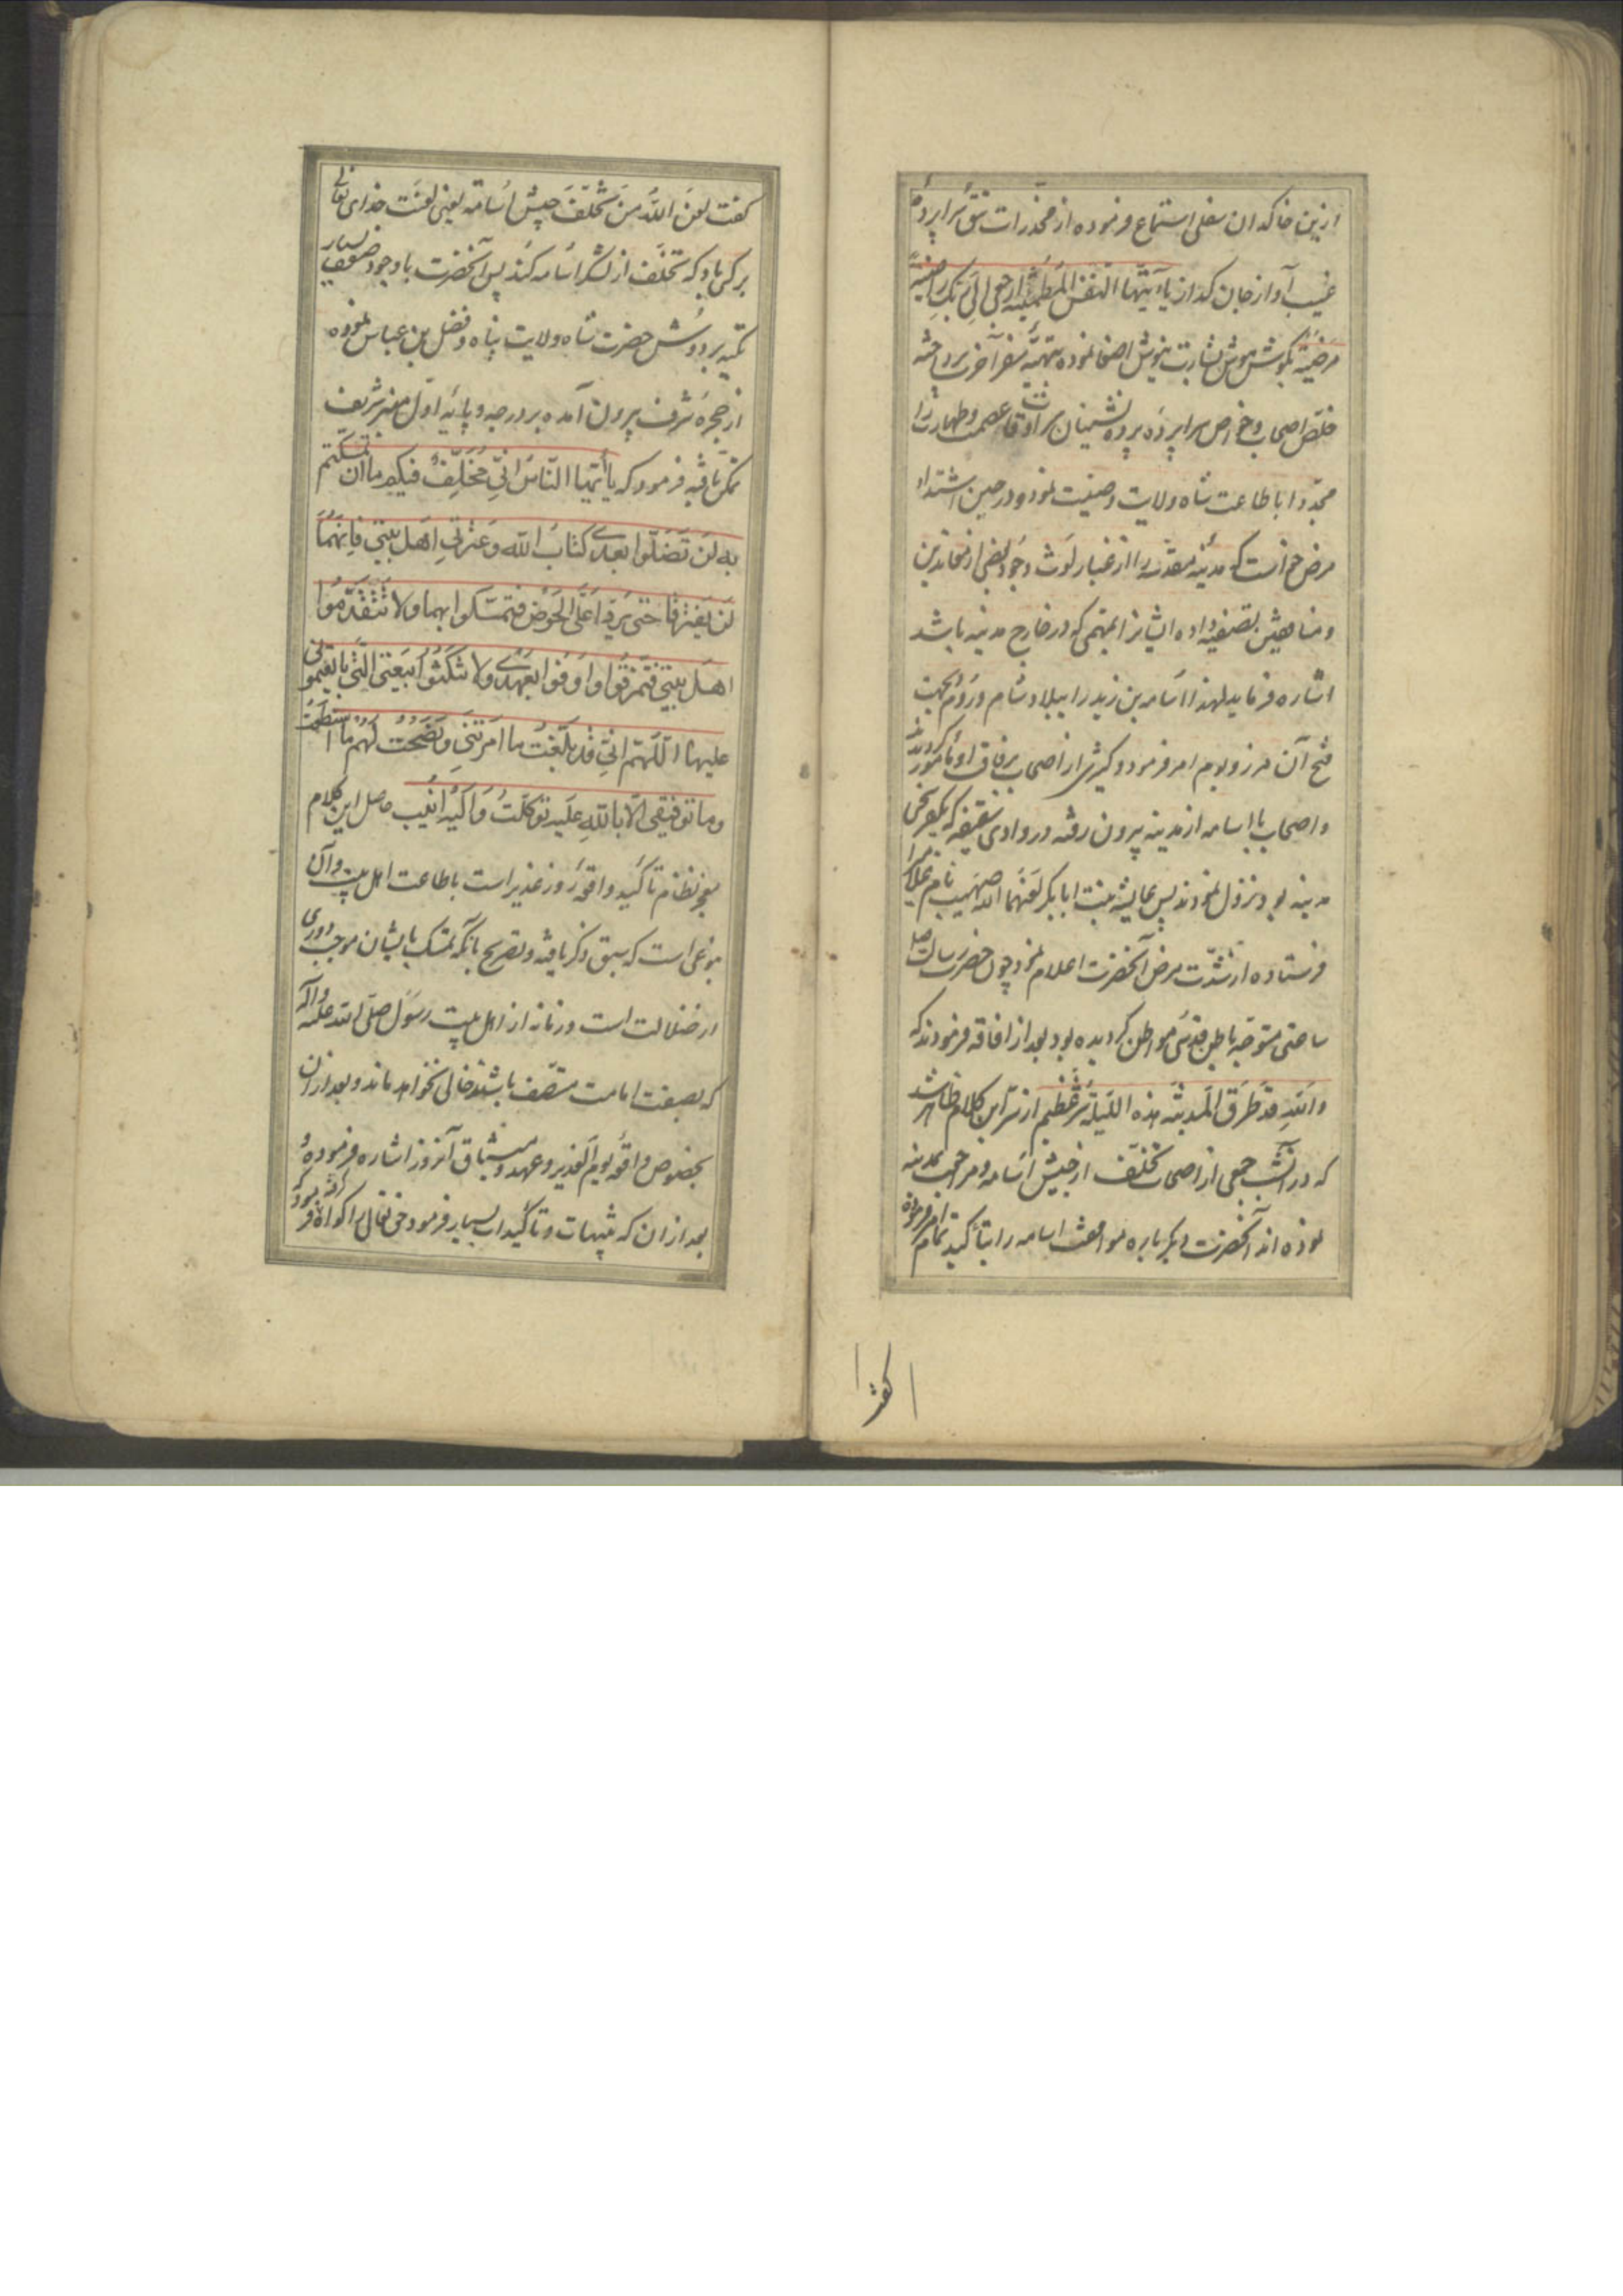 ازین خاکدان سفلی استماع فرموده از مخدرات تتق سراپردهٔ
غیب آواز جان گداز یا أیتها النفس المطمئنة ارجعی الی ربک راضیة
مرضیة بگوش هوش بشارت نیوش اصغا نموده بتهیّه سفر آخرت پرداخته
خلّص اصحاب و خواص سراپرده پرده نشینان سرادقات عصمت و طهارت را
مجدّدا باطاعت شاه ولایت وصیت نمود و در حین اشتداد
مرض خواست که مدینهٔ مقدسه را از غبار لوث وجود بعضی از معاندین
و منافقین تصفیه داده ایشانرا بمهمی که در خارج مدینه باشد
اشاره فرماید لهذا اسامه بن زید را ببلاد شام و روم بجهت
فتح آن مرز و بوم امر فرمود و کثیری از اصحاب برفاقت او مأمور گردیدند
و اصحاب با اسامه از مدینه بیرون رفته در وادی سقیفه که یکفرسخی
مدینه بود نزول نمودند پس عایشه بنت ابابکر لعنهما الله صهیب نام غلام را
فرستاده از شدّت مرض آنحضرت اعلام نمود چون حضرت رسالت صلعم
ساعتی متوجّه باطن قدسی مواطن گردیده بود بعد از افاقه فرمودند که
والله قد طرق المدینة هذه اللیلة شرّ عظیم از سرّ این کلام ظاهر شد
که در آنشب جمعی از اصحاب تخلّف از جیش اسامه و مراجعت بمدینه
نموده اند آنحضرت دیگر باره موافقت اسامه را بتأکید تمام امر فرموده
گفت
گفت لعن الله من تخلّف جیش اسامة یعنی لعنت خدای تعالی
بر کسی باد که تخلّف از لشکر اسامه کند پس آنحضرت با وجود ضعف بسیار
تکیه بر دوش حضرت شاه ولایت پناه و فضل بن عباس نموده
از حجرهٔ شرف بیرون آمده بر درجه و پایهٔ اول منبر شریف
تمکن یافته فرمود که یا أیها الناس انّی مخلّف فیکم ما ان تمسّکتم
به لن تضلّوا بعدی کتاب الله و عترتی اهل بیتی فانهما
لن یفترقا حتی یردا علیّ الحوض فتمسّکوا بهما ولا تتقدّموا
اهل بیتی فتمزقوا و اوفوا بعهدی ولا تنکثوا بیعتی الّتی بایعتمونی
علیها اللّهم انّی قد بلّغت ما امرتنی و نصحت لهم ما استطعت
وما توفیقی الّا بالله علیه توکّلت و الیه انیب حاصل این کلام
معجز نظام تأکید واقعهٔ روز غدیر است باطاعت اهل بیت و آن
بنوعی است که سبق ذکر یافته و تصریح بانکه تمسّک بایشان موجب دوری
از ضلالت است و زمانه از اهل بیت رسول صلّی الله علیه و آله
که بصفت امامت متّصف باشند خالی نخواهد ماند و بعد از ان
بخصوص واقعهٔ یوم الغدیر و عهد و میثاق آنروز اشاره فرموده
بعد از ان که تنبیهات و تأکیدات بسیار فرمود حق تعالی را گواه گرفته فرمود که